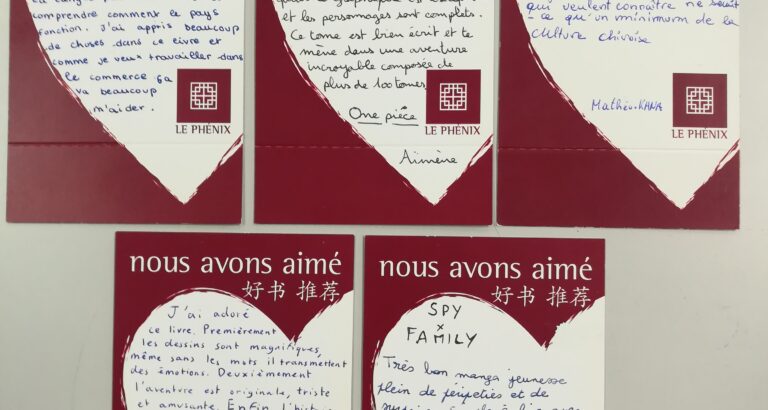 la langue
comprendre comment le pays
fonction. J'ai appris beaucoup
de choses dans ce livre et
comme je veux travailler dans
le commerce ça
va beaucoup
m'aider.
LE PHÉNIX
et les personnages sont complets.
Ce tome est bien écrit et te
mène dans une aventure
incroyable composée de
plus de 100 tomes
One pièce
Aimène
LE PHÉNIX
qui veulent connaître ne serait
-ce qu'un minimum de la
culture chinoise
Mathéo.KANA
LE PHÉNIX
nous avons aimé
好书 推荐
J'ai adoré
ce livre. Premièrement
les dessins sont magnifiques,
même sans les mots il transmettent
des émotions. Deuxièmement
l'aventure est originale, triste
et amusante. Enfin l'histoire
nous avons aimé
好书 推荐
SPY
×
FAMILY
Très bon manga jeunesse
plein de péripéties et de